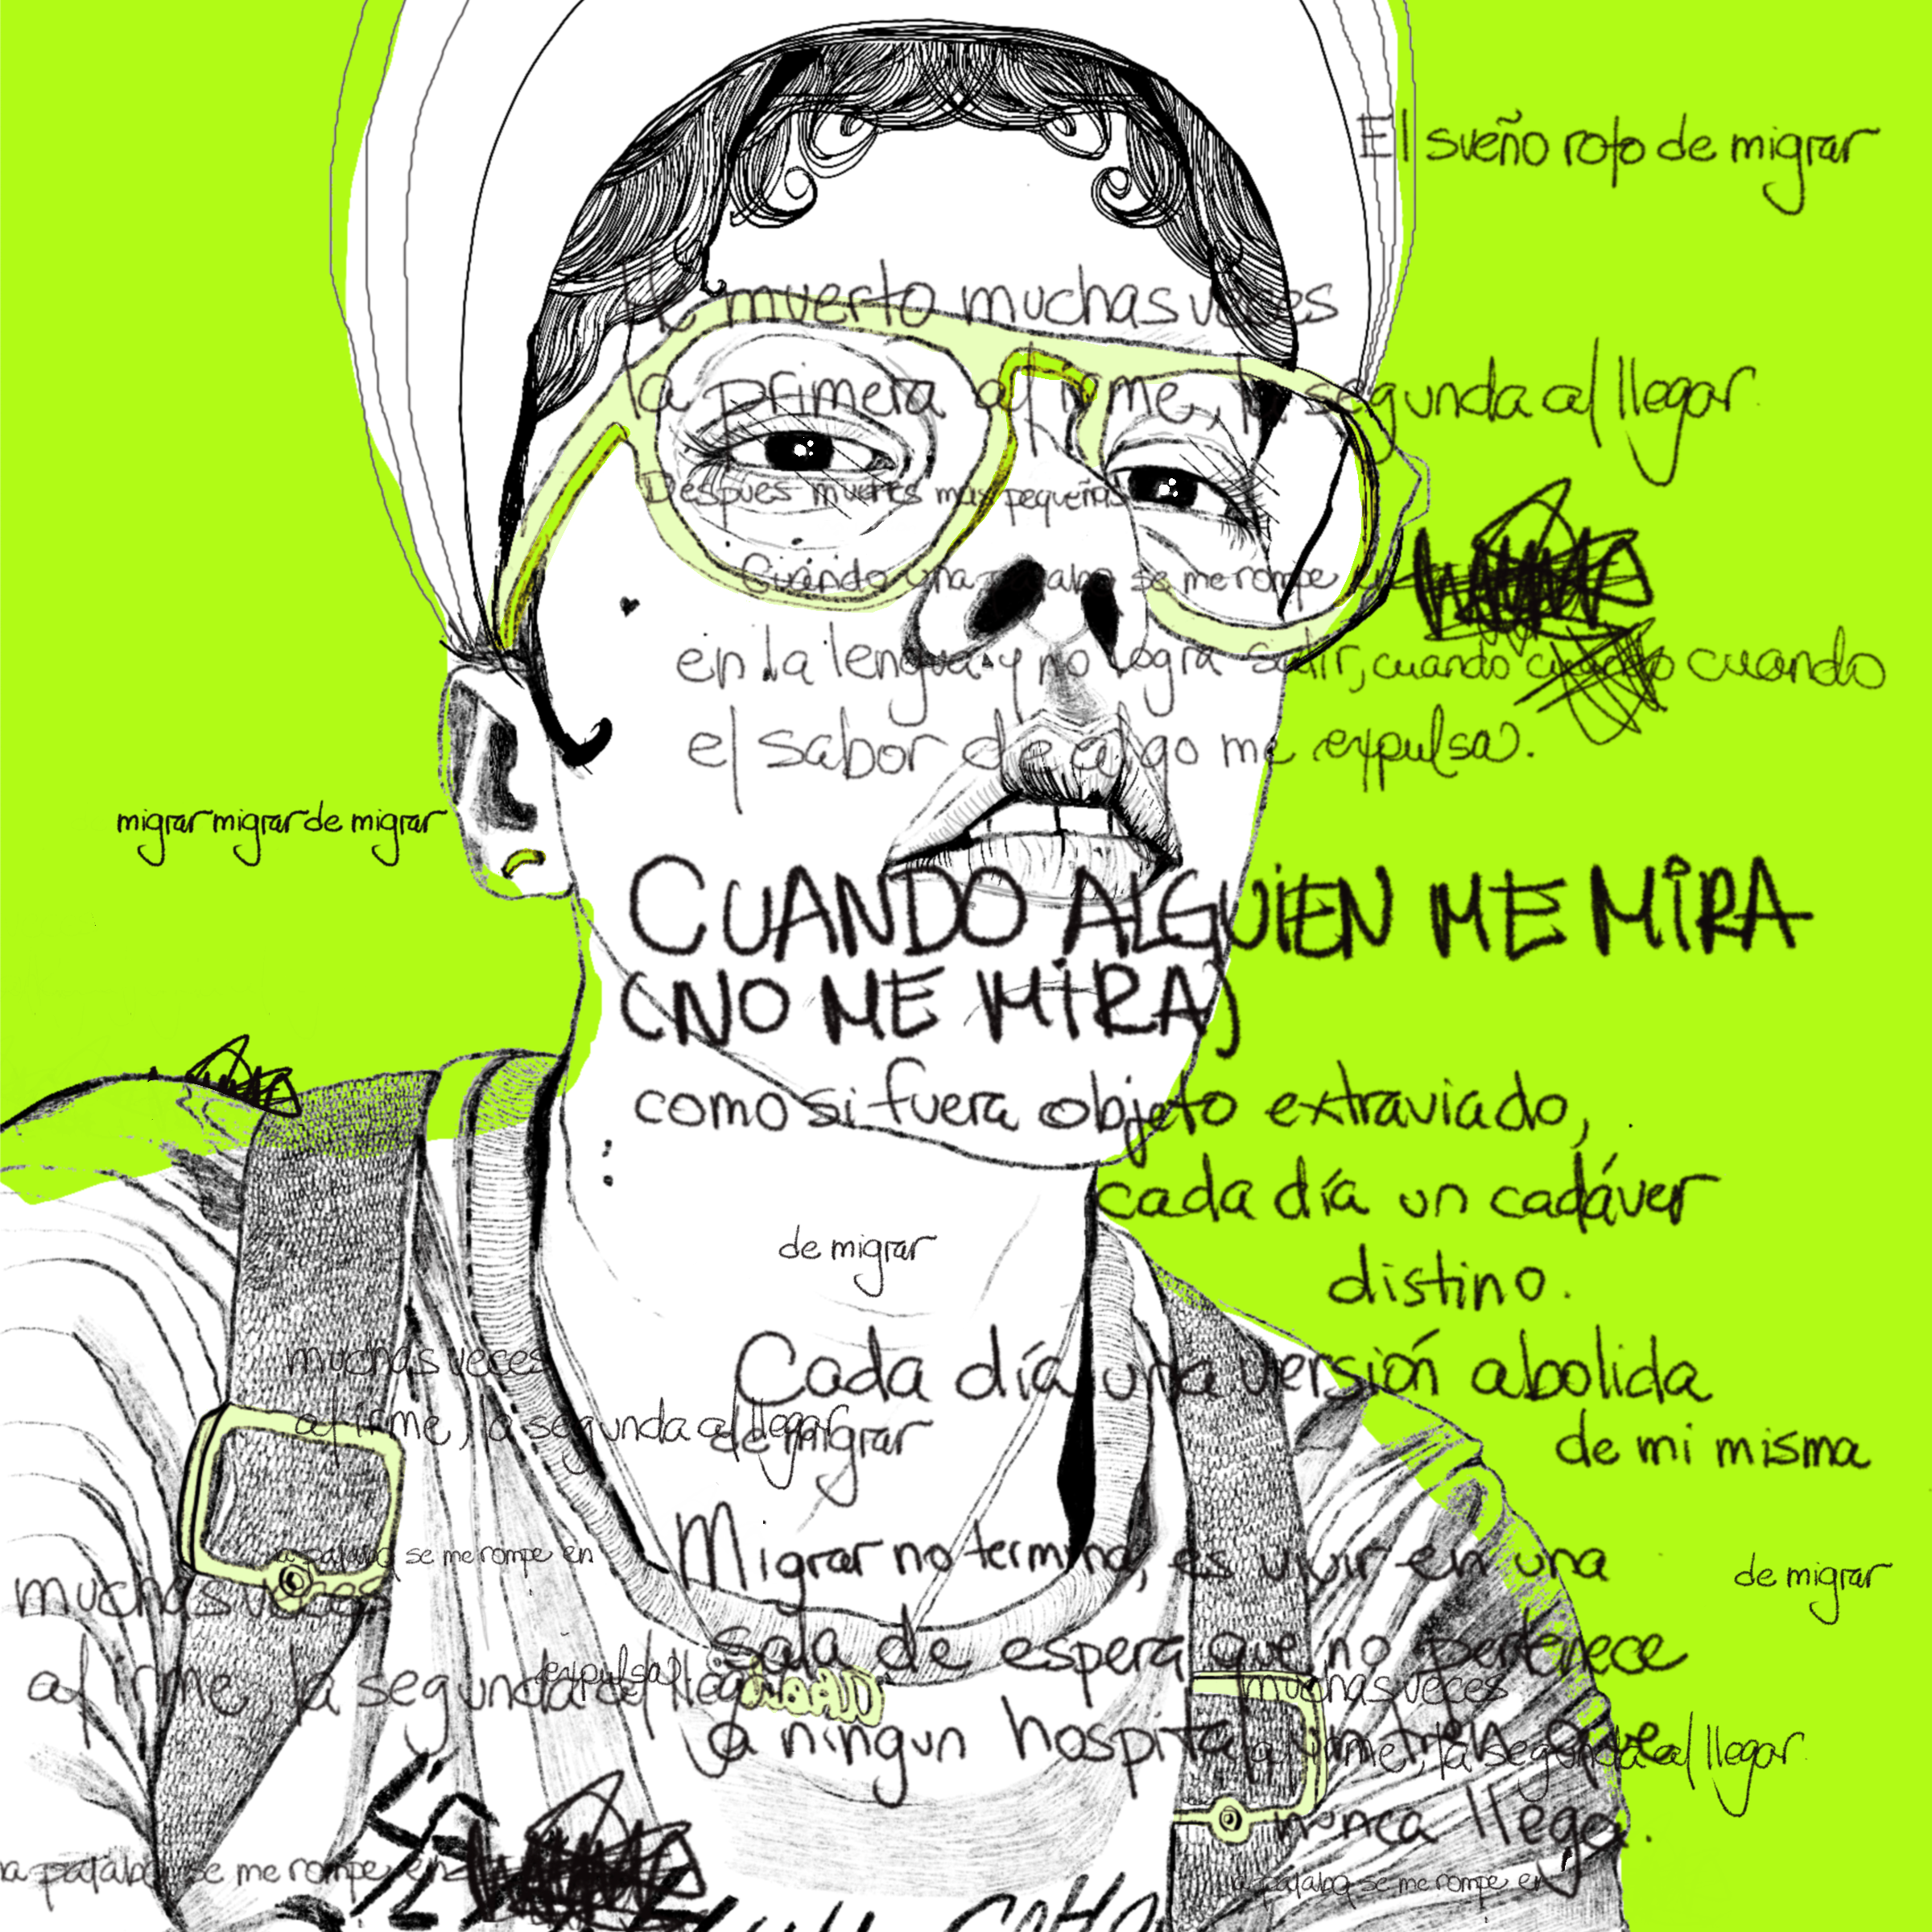 El sueño roto de migrar
He muerto muchas veces
la primera al irme, la segunda al llegar.
Despues muertes mas pequeñas
Cuándo una palabra se me rompe en
en la lengua y no logra salir, cuando cuando cuando
el sabor de algo me expulsa.
migrar migrar de migrar
CUANDO ALGUIEN ME MIRA
(NO ME MIRA)
como si fuera objeto extraviado,
cada día un cadáver
distino.
de migrar
Cada día una versión abolida
muchas veces
al irme, la segunda al llegar
de migrar
de mi misma
Migrar no termina, es vivir en una
la palabra se me rompe en
de migrar
muchas veces
sala de espera que no pertenece
al irme, la segunda al llegar
expulsa
muchas veces
a ningun hospital, un tren que
al irme, la segunda al llegar
nunca llega.
la palabra se me rompe en
la palabra se me rompe en